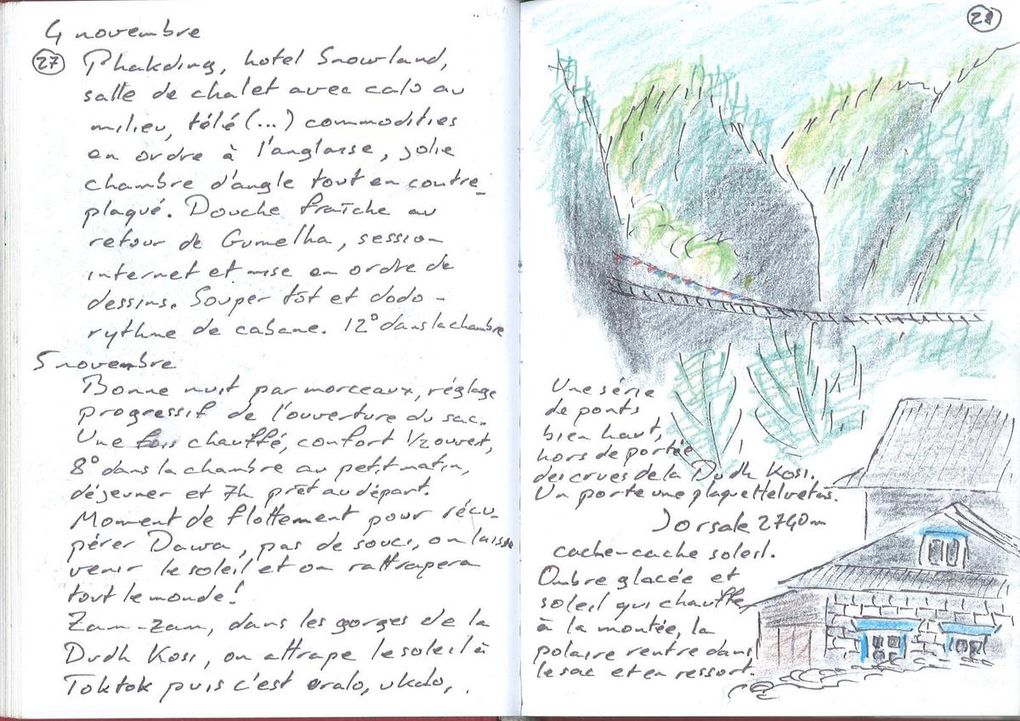 4 novembre
27 Phakding, hotel Snowland,
salle de chalet avec calo au
milieu, télé (...) commodities
en ordre à l'anglaise, jolie
chambre d'angle tout en contre-
plaqué. Douche fraîche au
retour de Gumelha, session
internet et mise en ordre de
dessins. Souper tôt et dodo -
rythme de cabane. 12° dans la chambre
5 novembre
Bonne nuit par morceaux, réglage
progressif de l'ouverture du sac.
Une fois chauffé, confort 1/2 ouvert,
8° dans la chambre au petit matin,
déjeuner et 7h prêt au départ.
Moment de flottement pour récu-
pérer Dawa, pas de souci, on laisse
venir le soleil et on rattrapera
tout le monde!
Zam-zam, dans les gorges de la
Dudh Kosi, on attrape le soleil à
Toktok puis c'est oralo, ukalo,
28
Une série
de ponts
bien haut,
hors de portée
des crues de la Dudh Kosi.
Un porte une plaque Helvetas.
Jorsale 2740m
cache-cache soleil.
Ombre glacée et
soleil qui chauffe
à la montée, la
polaire rentre dans
le sac et en ressort.